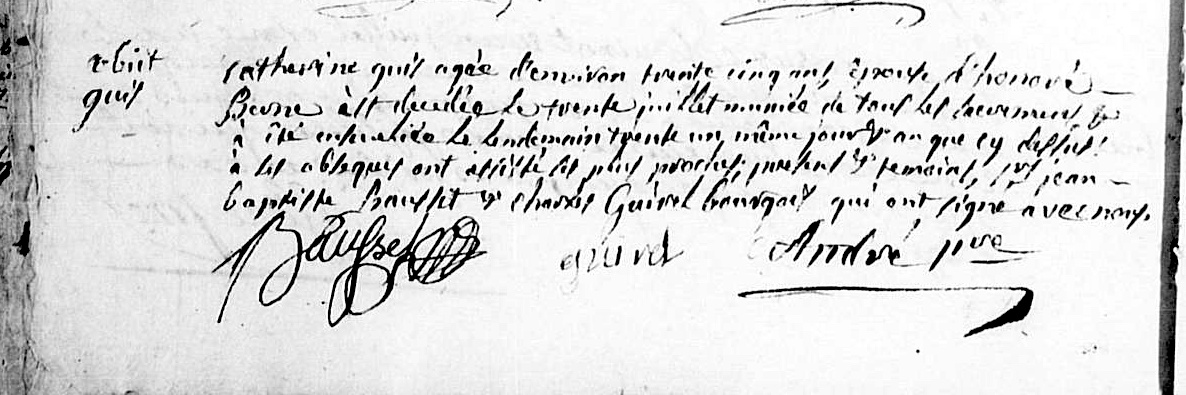 obiit
quis
Catherine quis agée d'environ trente cinq ans, Epouse d'honoré
est decedée le trente juillet muniée de tous les sacremens &
été ensevelie le lendemain trente un, même jour & an que cy dessus
à ses obseques ont assisté ses plus proches, presens & temoins, srs jean
baptiste Bausset & charles Guivel bourgois qui ont signé avec nous.
Bausset guivel André ptre